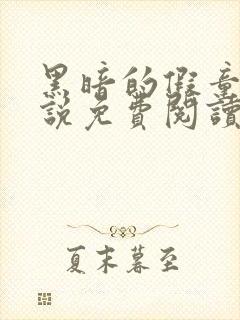 黑暗的假童
說免費閱讀
夏末暮至